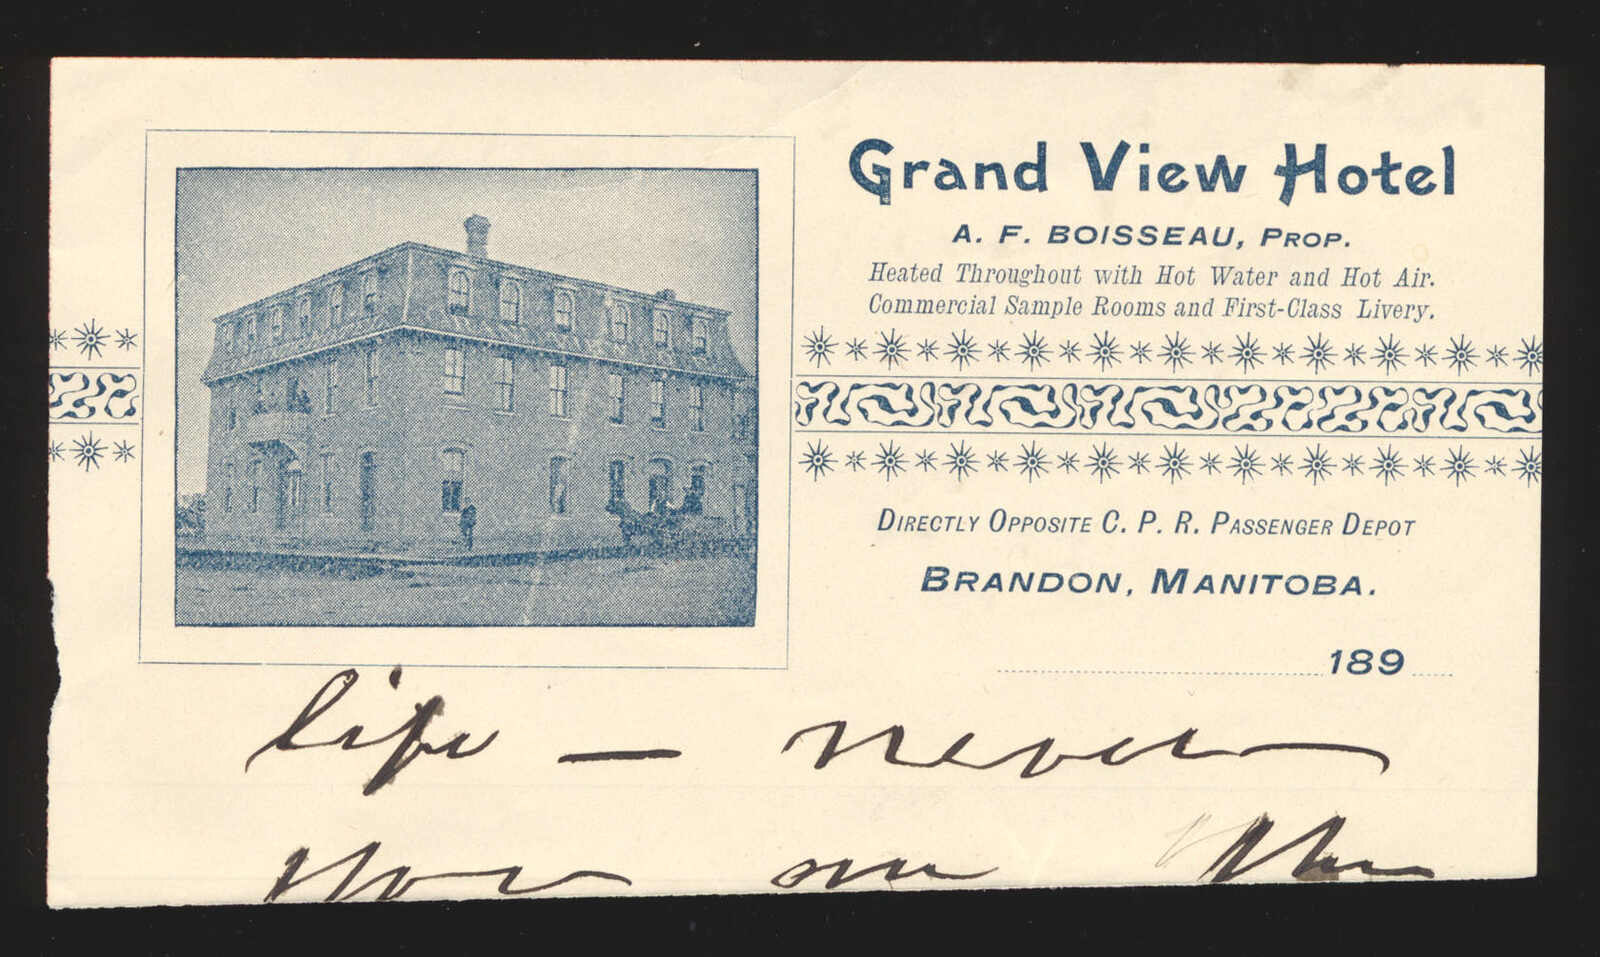 Grand View Hotel
A. F. BOISSEAU, PROP.
Heated Throughout with Hot Water and Hot Air.
Commercial Sample Rooms and First-Class Livery.
DIRECTLY OPPOSITE C. P. R. PASSENGER DEPOT
BRANDON, MANITOBA.
189
life — never